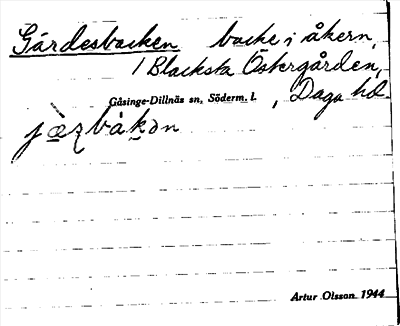 Gärdesbacken backe i åkern,
1 Blacksta Östergården,
Gåsinge-Dillnäs sn, Söderm. l. , Daga hd
jæ̀ʐbàkən
Artur Olsson 1944